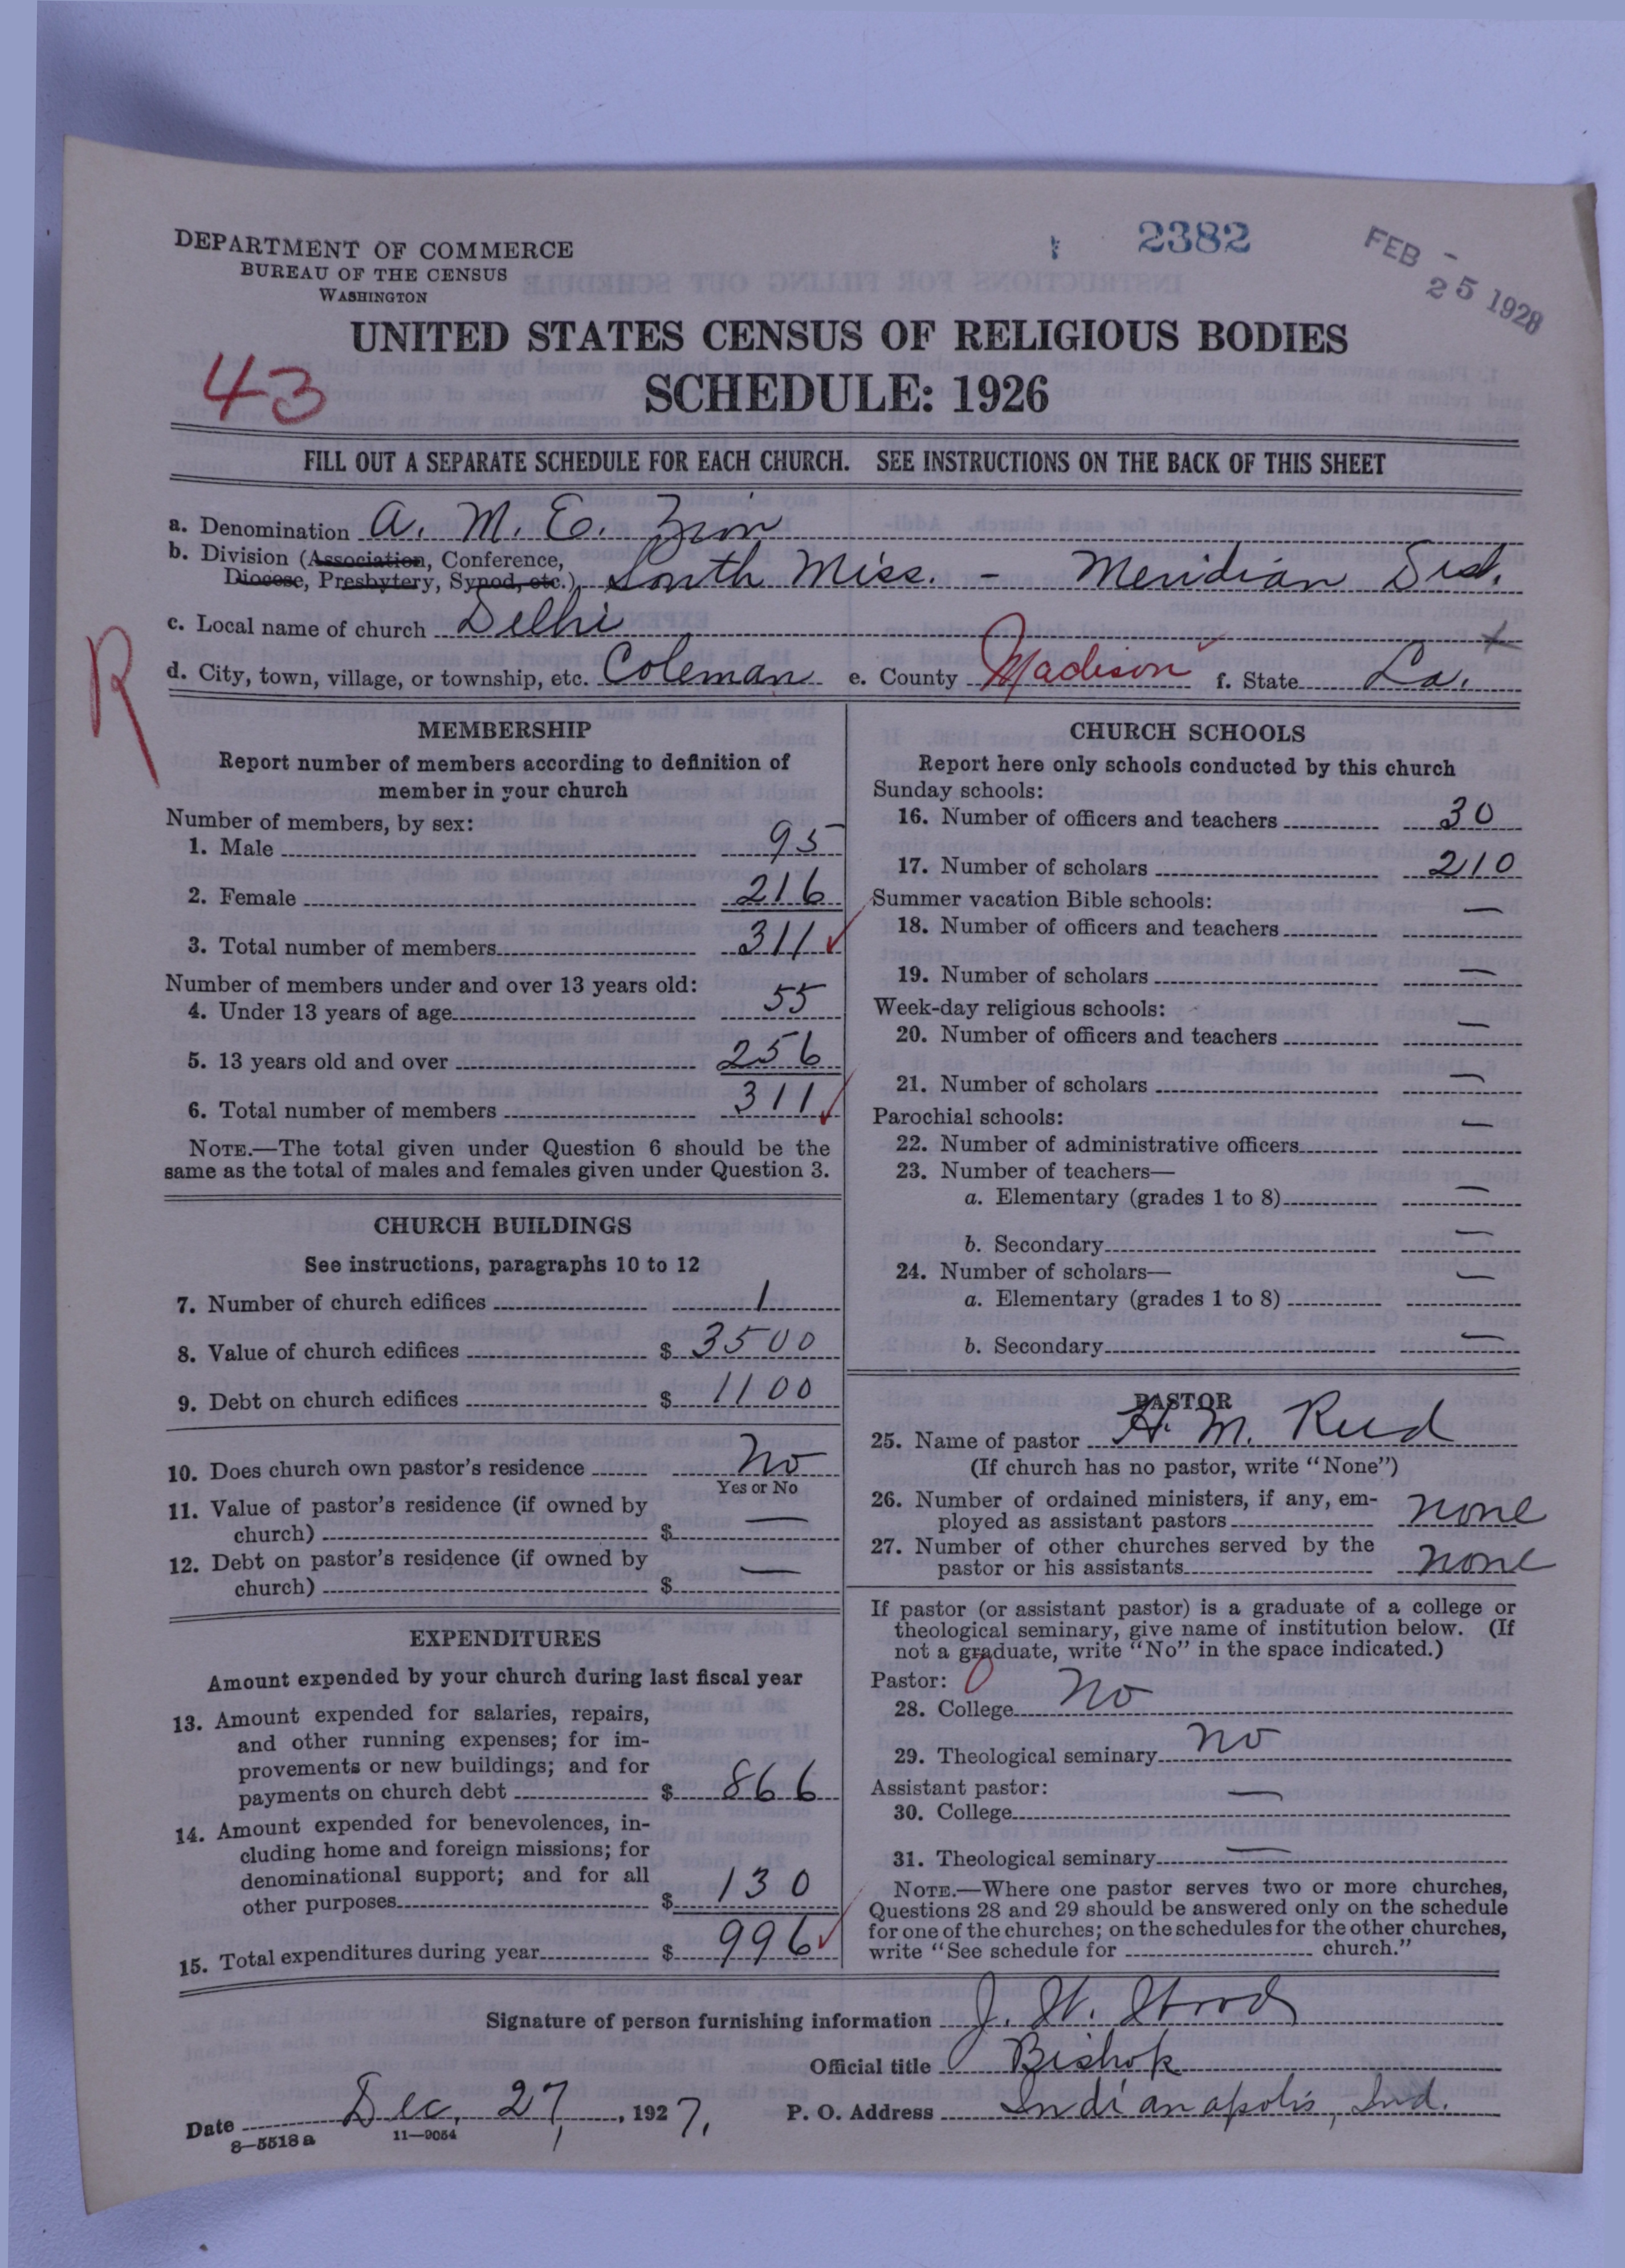 DEPARTMENT OF COMMERCE
BUREAU OF THE CENSUS
WASHINGTON
2382
FEB - 25 1928
UNITED STATES CENSUS OF RELIGIOUS BODIES
43
SCHEDULE: 1926
FILL OUT A SEPARATE SCHEDULE FOR EACH CHURCH. SEE INSTRUCTIONS ON THE BACK OF THIS SHEET
a. Denomination A. M. E. Zion
b. Division (Association, Conference,
Diocese, Presbytery, Synod, etc.) South Miss. - Meridian Dist.
c. Local name of church Delhi
R
d. City, town, village, or township, etc. Coleman e. County Madison f. State La.
MEMBERSHIP
Report number of members according to definition of
member in your church
Number of members, by sex:
1. Male 95
2. Female 216
3. Total number of members 311
Number of members under and over 13 years old:
4. Under 13 years of age 55
5. 13 years old and over 256
6. Total number of members 311
NOTE.—The total given under Question 6 should be the
same as the total of males and females given under Question 3.
CHURCH BUILDINGS
See instructions, paragraphs 10 to 12
7. Number of church edifices 1
8. Value of church edifices $ 3500
9. Debt on church edifices $ 1100
10. Does church own pastor's residence No
Yes or No
11. Value of pastor's residence (if owned by
church) $ —
12. Debt on pastor's residence (if owned by
church) $ —
EXPENDITURES
Amount expended by your church during last fiscal year
13. Amount expended for salaries, repairs,
and other running expenses; for im-
provements or new buildings; and for
payments on church debt $ 866
14. Amount expended for benevolences, in-
cluding home and foreign missions; for
denominational support; and for all
other purposes $ 130
15. Total expenditures during year $ 996
CHURCH SCHOOLS
Report here only schools conducted by this church
Sunday schools:
16. Number of officers and teachers 30
17. Number of scholars 210
Summer vacation Bible schools:
18. Number of officers and teachers —
19. Number of scholars —
Week-day religious schools:
20. Number of officers and teachers —
21. Number of scholars —
Parochial schools:
22. Number of administrative officers —
23. Number of teachers—
a. Elementary (grades 1 to 8) —
b. Secondary —
24. Number of scholars—
a. Elementary (grades 1 to 8) —
b. Secondary —
PASTOR
25. Name of pastor H. M. Reed
(If church has no pastor, write "None")
26. Number of ordained ministers, if any, em-
ployed as assistant pastors none
27. Number of other churches served by the
pastor or his assistants none
If pastor (or assistant pastor) is a graduate of a college or
theological seminary, give name of institution below. (If
not a graduate, write "No" in the space indicated.)
Pastor: 0
28. College No
29. Theological seminary no
Assistant pastor:
30. College —
31. Theological seminary —
NOTE.—Where one pastor serves two or more churches,
Questions 28 and 29 should be answered only on the schedule
for one of the churches; on the schedules for the other churches,
write "See schedule for church."
Signature of person furnishing information J. W. Wood
Official title Bishop
Date Dec. 27, 1927. P. O. Address Indianapolis, Ind.
8—5518a 11—9054